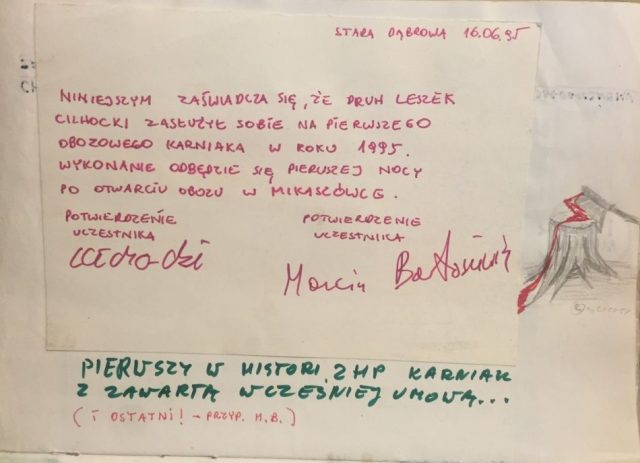 STARA DĄBROWA 16.06.95
NINIEJSZYM ZAŚWIADCZA SIĘ, ŻE DRUH LESZEK
CILHOCKI ZASŁUŻYŁ SOBIE NA PIERWSZEGO
OBOZOWEGO KARNIAKA W ROKU 1995.
WYKONANIE ODBĘDZIE SIĘ PIERWSZEJ NOCY
PO OTWARCIU OBOZU W MIKASZÓWCE.
POTWIERDZENIE
UCZESTNIKA
POTWIERDZENIE
UCZESTNIKA
Marcin
PIERWSZY W HISTORI ZHP KARNIAK
Z ZAWARTĄ WCZEŚNIEJ UMOWĄ...
(I OSTATNI! - PRZYP. M.B.)